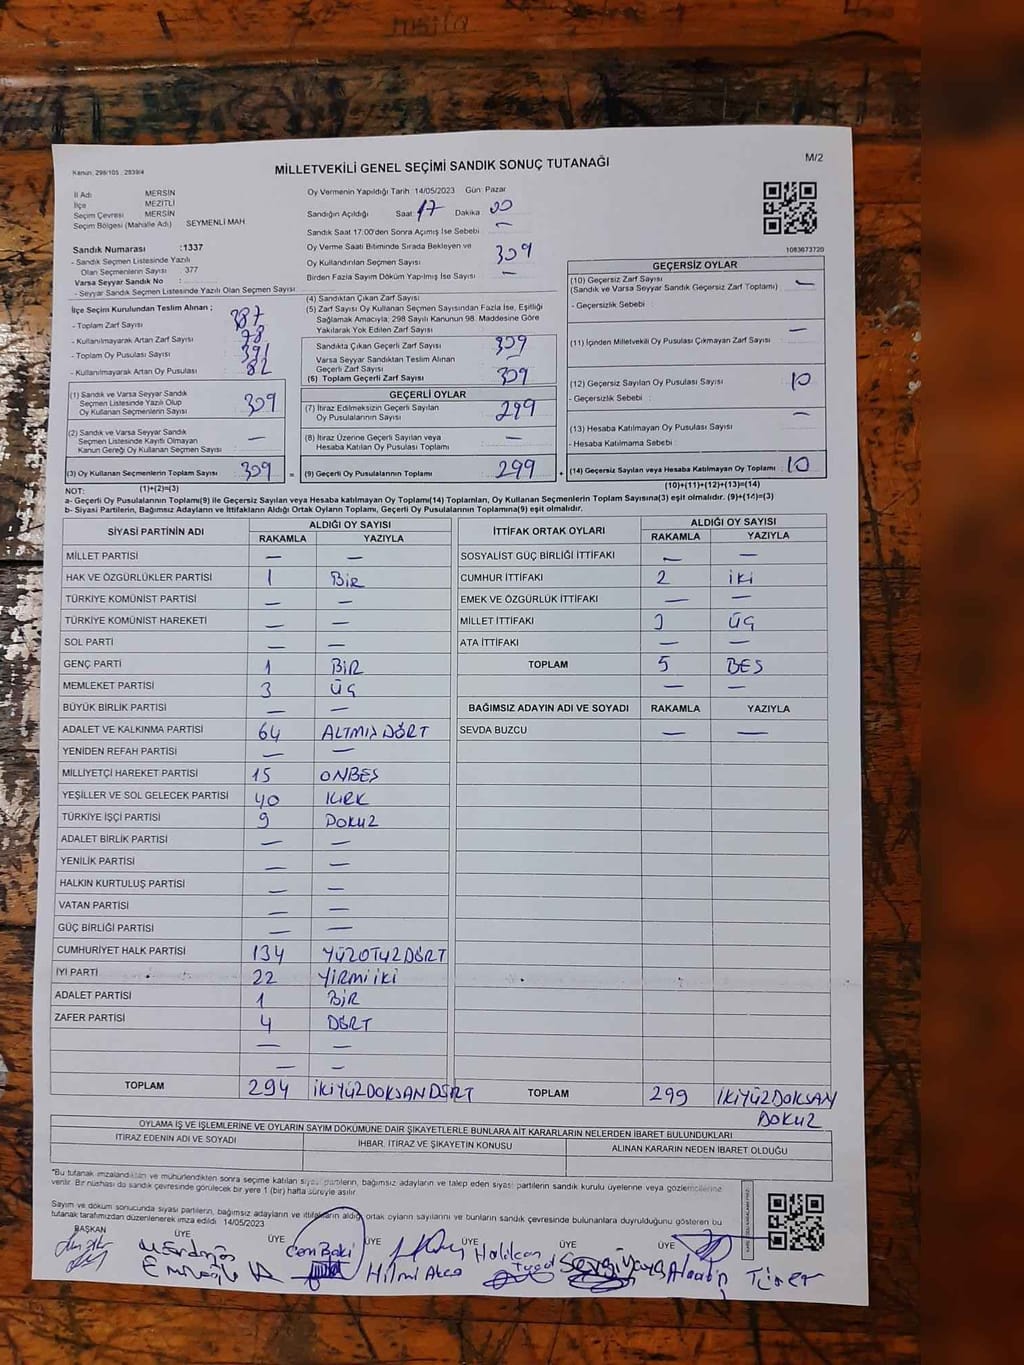 M/2
Kanun: 298/105 : 2839/4
MİLLETVEKİLİ GENEL SEÇİMİ SANDIK SONUÇ TUTANAĞI
İl Adı MERSİN
İlçe MEZİTLİ
Seçim Çevresi MERSİN
Seçim Bölgesi (Mahalle Adı) SEYMENLİ MAH.
Sandık Numarası :1337
- Sandık Seçmen Listesinde Yazılı
Olan Seçmenlerin Sayısı : 377
Varsa Seyyar Sandık No :
- Seyyar Sandık Seçmen Listesinde Yazılı Olan Seçmen Sayısı
Oy Vermenin Yapıldığı Tarih :14/05/2023 Gün: Pazar
Sandığın Açıldığı Saat: 17 Dakika 00
Sandık Saat 17:00'den Sonra Açımış İse Sebebi : —
Oy Verme Saati Bitiminde Sırada Bekleyen ve
Oy Kullandırılan Seçmen Sayısı 309
Birden Fazla Sayım Döküm Yapılmış İse Sayısı —
1083673720
İlçe Seçim Kurulundan Teslim Alınan ;
- Toplam Zarf Sayısı 387
- Kullanılmayarak Artan Zarf Sayısı 78
- Toplam Oy Pusulası Sayısı 391
- Kullanılmayarak Artan Oy Pusulası 82
(1) Sandık ve Varsa Seyyar Sandık
Seçmen Listesinde Yazılı Olup
Oy Kullanan Seçmenlerin Sayısı 309
(2) Sandık ve Varsa Seyyar Sandık
Seçmen Listesinde Kayıtlı Olmayan
Kanun Gereği Oy Kullanan Seçmen Sayısı —
(3) Oy Kullanan Seçmenlerin Toplam Sayısı 309 =
(1)+(2)=(3)
(4) Sandıktan Çıkan Zarf Sayısı
(5) Zarf Sayısı Oy Kullanan Seçmen Sayısından Fazla İse, Eşitliği
Sağlamak Amacıyla; 298 Sayılı Kanunun 98. Maddesine Göre
Yakılarak Yok Edilen Zarf Sayısı
Sandıkta Çıkan Geçerli Zarf Sayısı 309
Varsa Seyyar Sandıktan Teslim Alınan
Geçerli Zarf Sayısı —
(6) Toplam Geçerli Zarf Sayısı 309
GEÇERLİ OYLAR
(7) İtiraz Edilmeksizin Geçerli Sayılan
Oy Pusulalarının Sayısı 299
(8) İtiraz Üzerine Geçerli Sayılan veya
Hesaba Katılan Oy Pusulası Toplamı —
(9) Geçerli Oy Pusulalarının Toplamı 299 +
GEÇERSİZ OYLAR
(10) Geçersiz Zarf Sayısı
(Sandık ve Varsa Seyyar Sandık Geçersiz Zarf Toplamı) —
- Geçersizlik Sebebi :
(11) İçinden Milletvekili Oy Pusulası Çıkmayan Zarf Sayısı —
(12) Geçersiz Sayılan Oy Pusulası Sayısı 10
- Geçersizlik Sebebi :
(13) Hesaba Katılmayan Oy Pusulası Sayısı —
- Hesaba Katılmama Sebebi :
(14) Geçersiz Sayılan veya Hesaba Katılmayan Oy Toplamı 10
(10)+(11)+(12)+(13)=(14)
NOT:
a- Geçerli Oy Pusulalarının Toplamı(9) ile Geçersiz Sayılan veya Hesaba katılmayan Oy Toplamı(14) Toplamları, Oy Kullanan Seçmenlerin Toplam Sayısına(3) eşit olmalıdır. (9)+(14)=(3)
b- Siyasi Partilerin, Bağımsız Adayların ve İttifakların Aldığı Ortak Oyların Toplamı, Geçerli Oy Pusulalarının Toplamına(9) eşit olmalıdır.
SİYASİ PARTİNİN ADI ALDIĞI OY SAYISI
RAKAMLA YAZIYLA
MİLLET PARTİSİ — —
HAK VE ÖZGÜRLÜKLER PARTİSİ 1 BİR
TÜRKİYE KOMÜNİST PARTİSİ — —
TÜRKİYE KOMÜNİST HAREKETİ — —
SOL PARTİ — —
GENÇ PARTİ 1 BİR
MEMLEKET PARTİSİ 3 ÜÇ
BÜYÜK BİRLİK PARTİSİ — —
ADALET VE KALKINMA PARTİSİ 64 ALTMIŞ DÖRT
YENİDEN REFAH PARTİSİ — —
MİLLİYETÇİ HAREKET PARTİSİ 15 ONBEŞ
YEŞİLLER VE SOL GELECEK PARTİSİ 40 KIRK
TÜRKİYE İŞÇİ PARTİSİ 9 DOKUZ
ADALET BİRLİK PARTİSİ — —
YENİLİK PARTİSİ — —
HALKIN KURTULUŞ PARTİSİ — —
VATAN PARTİSİ — —
GÜÇ BİRLİĞİ PARTİSİ — —
CUMHURİYET HALK PARTİSİ 134 YÜZOTUZDÖRT
İYİ PARTİ 22 YİRMİİKİ
ADALET PARTİSİ 1 BİR
ZAFER PARTİSİ 4 DÖRT
— —
— —
TOPLAM 294 İKİYÜZDOKSANDÖRT
İTTİFAK ORTAK OYLARI ALDIĞI OY SAYISI
RAKAMLA YAZIYLA
SOSYALİST GÜÇ BİRLİĞİ İTTİFAKI — —
CUMHUR İTTİFAKI 2 İKİ
EMEK VE ÖZGÜRLÜK İTTİFAKI — —
MİLLET İTTİFAKI 3 ÜÇ
ATA İTTİFAKI — —
TOPLAM 5 BEŞ
— —
BAĞIMSIZ ADAYIN ADI VE SOYADI RAKAMLA YAZIYLA
SEVDA BUZCU — —
TOPLAM 299 İKİYÜZDOKSAN
DOKUZ
OYLAMA İŞ VE İŞLEMLERİNE VE OYLARIN SAYIM DÖKÜMÜNE DAİR ŞİKAYETLERLE BUNLARA AİT KARARLARIN NELERDEN İBARET BULUNDUKLARI
İTİRAZ EDENİN ADI VE SOYADI İHBAR, İTİRAZ VE ŞİKAYETİN KONUSU ALINAN KARARIN NEDEN İBARET OLDUĞU
*Bu tutanak imzalandıktan ve mühürlendikten sonra seçime katılan siyasi partilerin, bağımsız adayların ve talep eden siyasi partilerin sandık kurulu üyelerine veya gözlemcilerine
verilir. Bir nüshası da sandık çevresinde görülecek bir yere 1 (bir) hafta süreyle asılır.
Sayım ve döküm sonucunda siyasi partilerin, bağımsız adayların ve ittifakların aldığı ortak oyların sayılarını ve bunların sandık çevresinde bulunanlara duyrulduğunu gösteren bu
tutanak tarafımızdan düzenlenerek imza edildi. 14/05/2023
BAŞKAN ÜYE ÜYE ÜYE ÜYE ÜYE ÜYE
Cem Baki
Hilmi Akca
Halilcan
Alaatin Türer